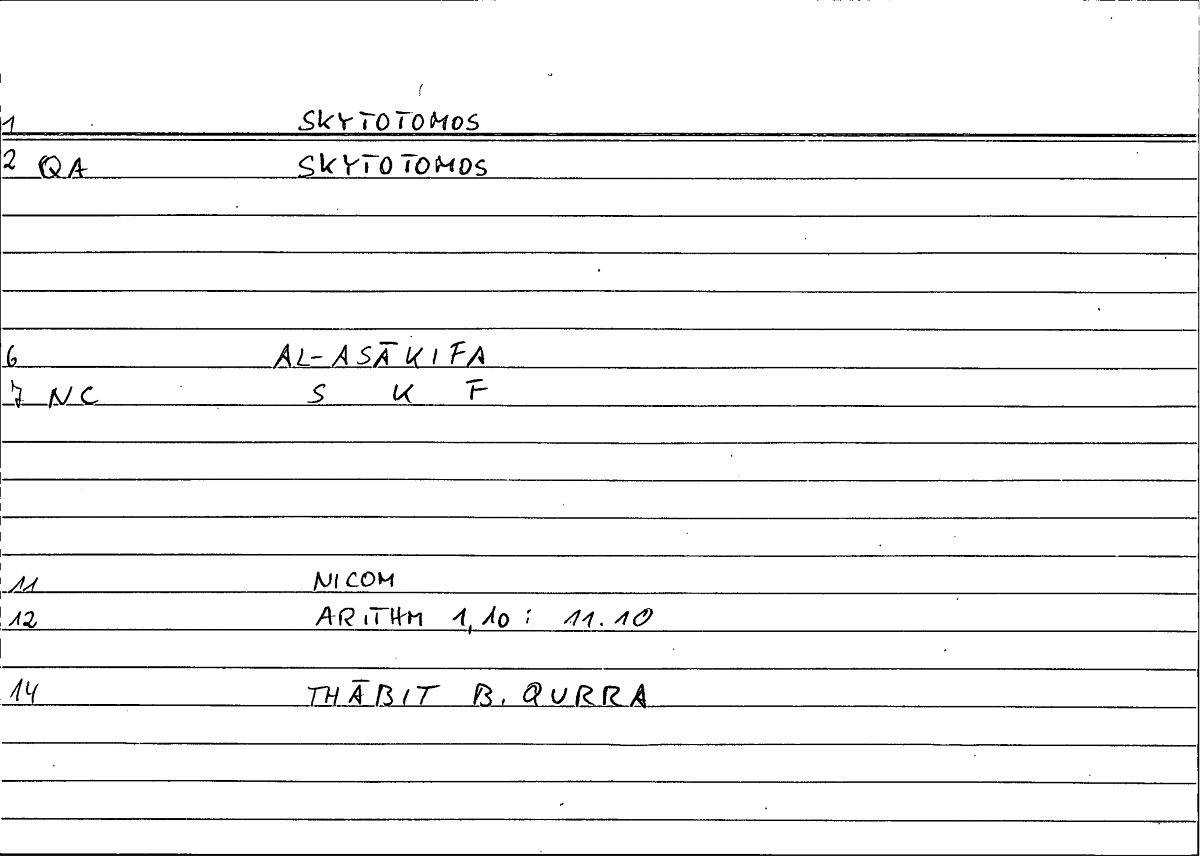 1 SKYTOTOMOS
2 QA SKYTOTOMOS
6 AL-ASĀKIFA
7 NC S K F
11 NICOM
12 ARITHM 1,10 : 11.10
14 THĀBIT B. QURRA